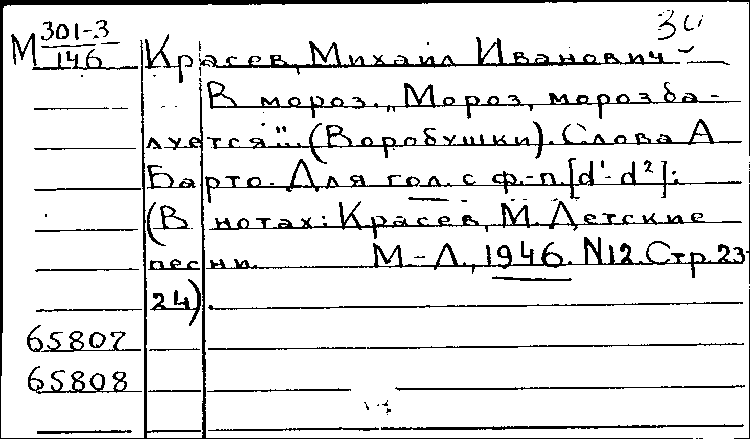 30
М 301-3/146 Красев, Михаил Иванович
В мороз. „Мороз, мороз ба-
луется"... (Воробушки). Слова А
Барто. Для гол. с ф.-п. [d¹-d²];
(В нотах: Красев, М. Детские
песни. М.-Л., 1946. N12. Стр. 23-
24).
65807
65808